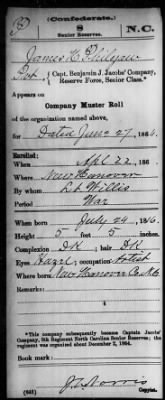 (Confederate.)
S
8
N.C.
Senior Reserves.
James K. Philyaw
Pvt., Capt. Benjamin J. Jacobs' Company,
Reserve Force, Senior Class.*
Appears on
Company Muster Roll
of the organization named above,
for Dated June 27, 1864.
Enlisted:
When Apl 22, 186
Where New Hanover
By whom Lt. Willis
Period War
When born July 24, 1816.
Height 5 feet 5 inch
Complexion DK; hair DK
Eyes Hazel; occupation Artist
Where born New Hanover Co. NC
Remarks:
*This company subsequently became Captain Jacobs'
Company, 8th Regiment North Carolina Senior Reserves; the
regiment was organized about December 2, 1864.
Book mark:
(641)
Morris
Copyist.